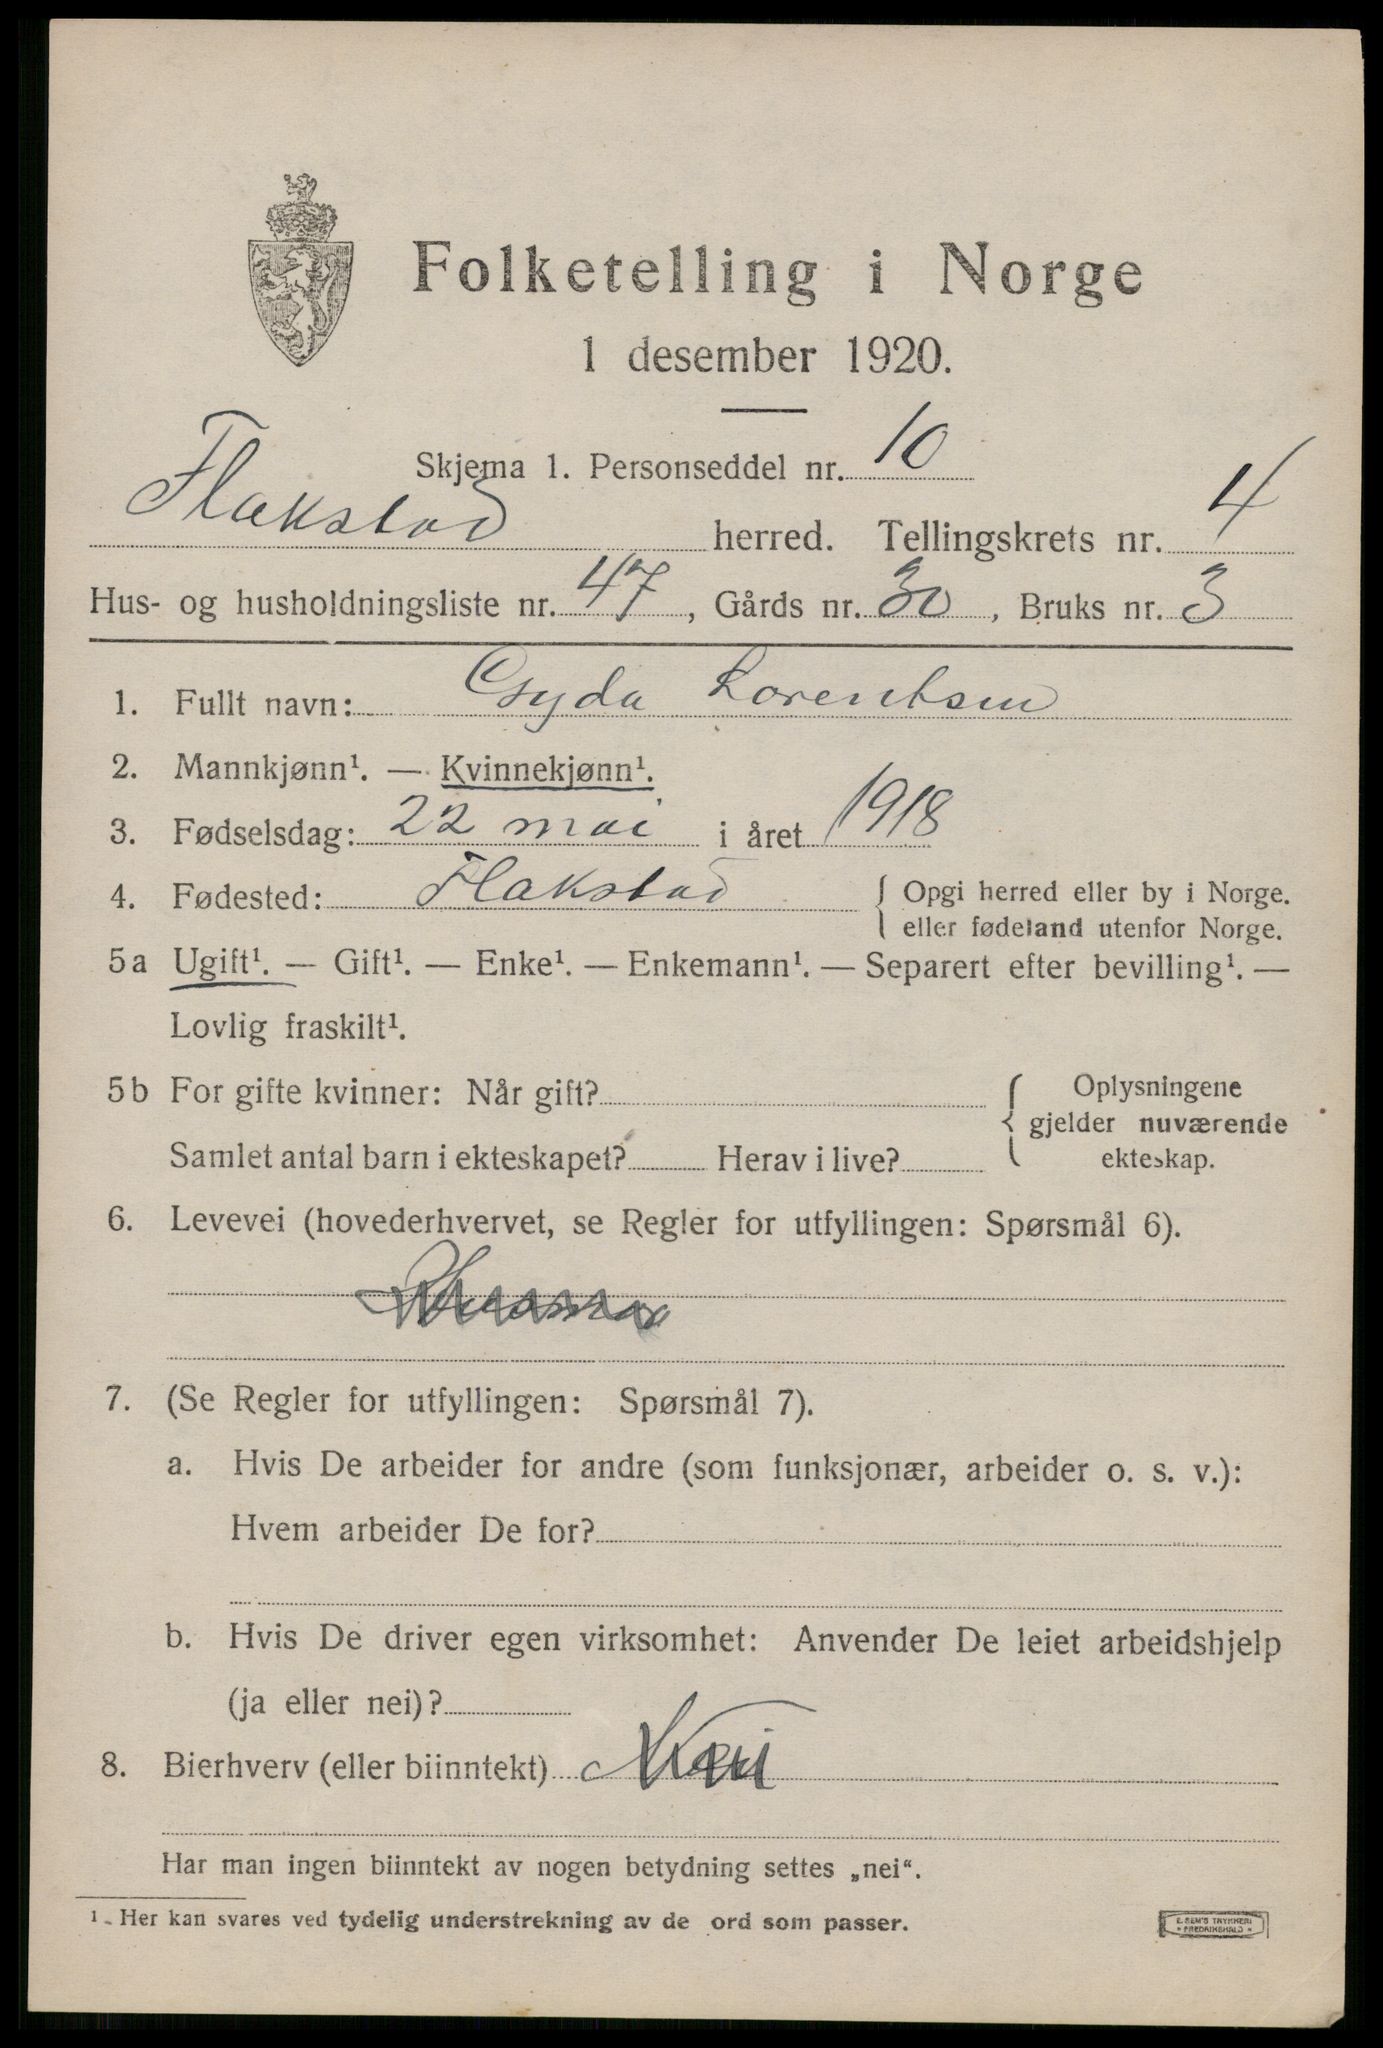 Folketelling i Norge
1 desember 1920.
Skjema 1. Personseddel nr. 10
Flakstad herred. Tellingskrets nr. 4
Hus- og husholdningsliste nr. 47, Gårds nr. 30, Bruks nr. 3
1. Fullt navn: Gyda Lorentsen
2. Mannkjønn¹. — Kvinnekjønn¹.
3. Fødselsdag: 22 mai i året 1918
4. Fødested: Flakstad { Opgi herred eller by i Norge.
eller fødeland utenfor Norge.
5a Ugift¹. — Gift¹. — Enke¹. — Enkemann¹. — Separert efter bevilling¹. —
Lovlig fraskilt¹.
5b For gifte kvinner: Når gift? { Oplysningene
gjelder nuværende
Samlet antal barn i ekteskapet? Herav i live? ekteskap.
6. Levevei (hovederhvervet, se Regler for utfyllingen: Spørsmål 6).
7. (Se Regler for utfyllingen: Spørsmål 7).
a. Hvis De arbeider for andre (som funksjonær, arbeider o. s. v.):
Hvem arbeider De for?
b. Hvis De driver egen virksomhet: Anvender De leiet arbeidshjelp
(ja eller nei)?
8. Bierhverv (eller biinntekt) Nei
Har man ingen biinntekt av nogen betydning settes „nei“.
¹ Her kan svares ved tydelig understrekning av de ord som passer.
E. SEM'S TRYKKERI
* FREDRIKSHALD *